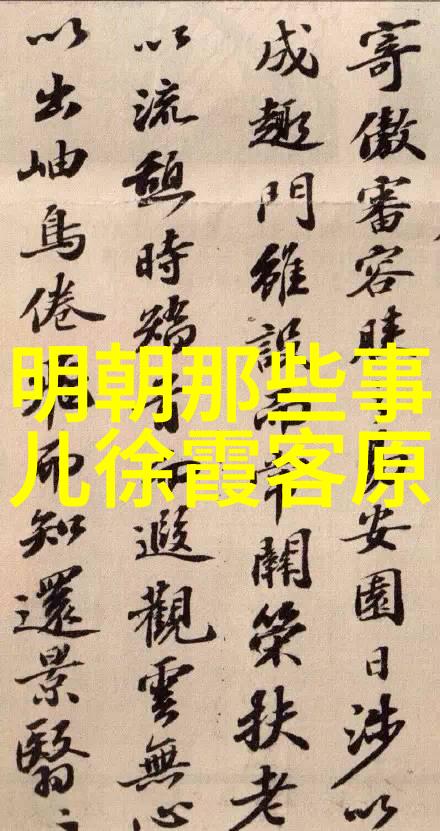 明朝那些事
儿徐霞客原
寄傲審容膝安園日涉以
成趣門雖設而常關策扶老
以流憩時矯首而遐觀雲無心
以出岫鳥倦而知還景翳